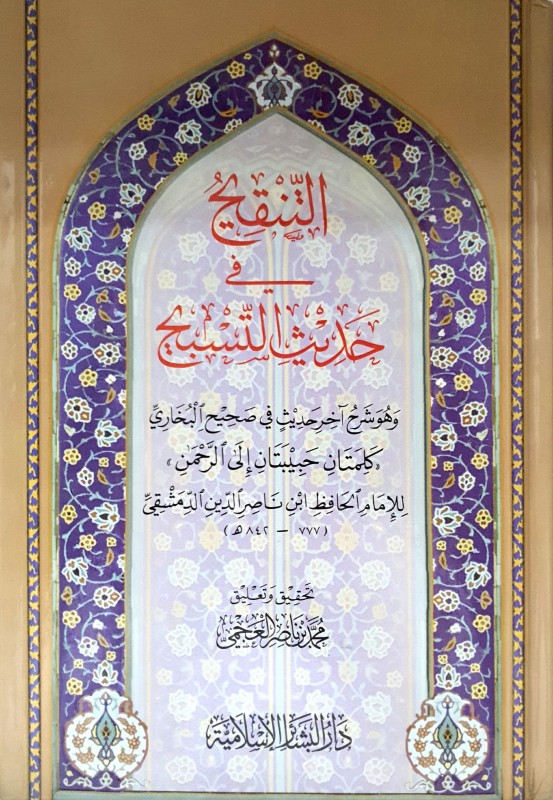 التَّنْقِيحُ
في
حَدِيْثِ التَّسْبِيحِ
وَهُوَ شَرْحُ آخِرِ حَدِيْثٍ فِي صَحِيْحِ الْبُخَارِيِّ
«كَلِمَتَانِ حَبِيْبَتَانِ إِلَى الرَّحْمَنِ»
لِلإِمَامِ الْحَافِظِ ابْنِ نَاصِرِ الدِّينِ الدِّمَشْقِيِّ
(٧٧٧ – ٨٤٢ هـ)
تَحْقِيْق وَتَعْلِيْق
مُحَمَّد بْن نَاصِر الْعَجْمِيّ
دَارُ البَشَائِرِ الإِسْلَامِيَّة